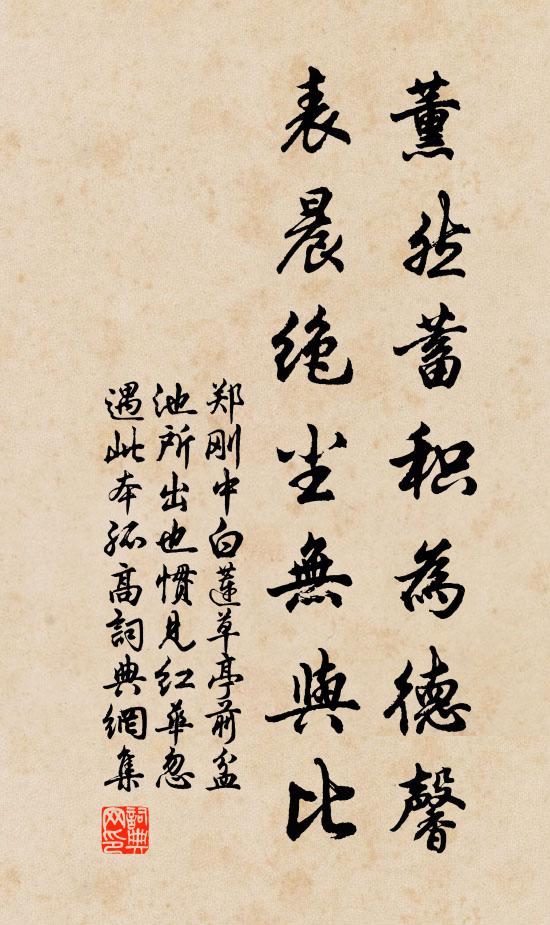 薰然蓄积為德馨
表晨绝尘無與比
郑刚中白莲草亭前盆
池所出也惯见红華忽
遇此本孤高詞典網集
詞典网印